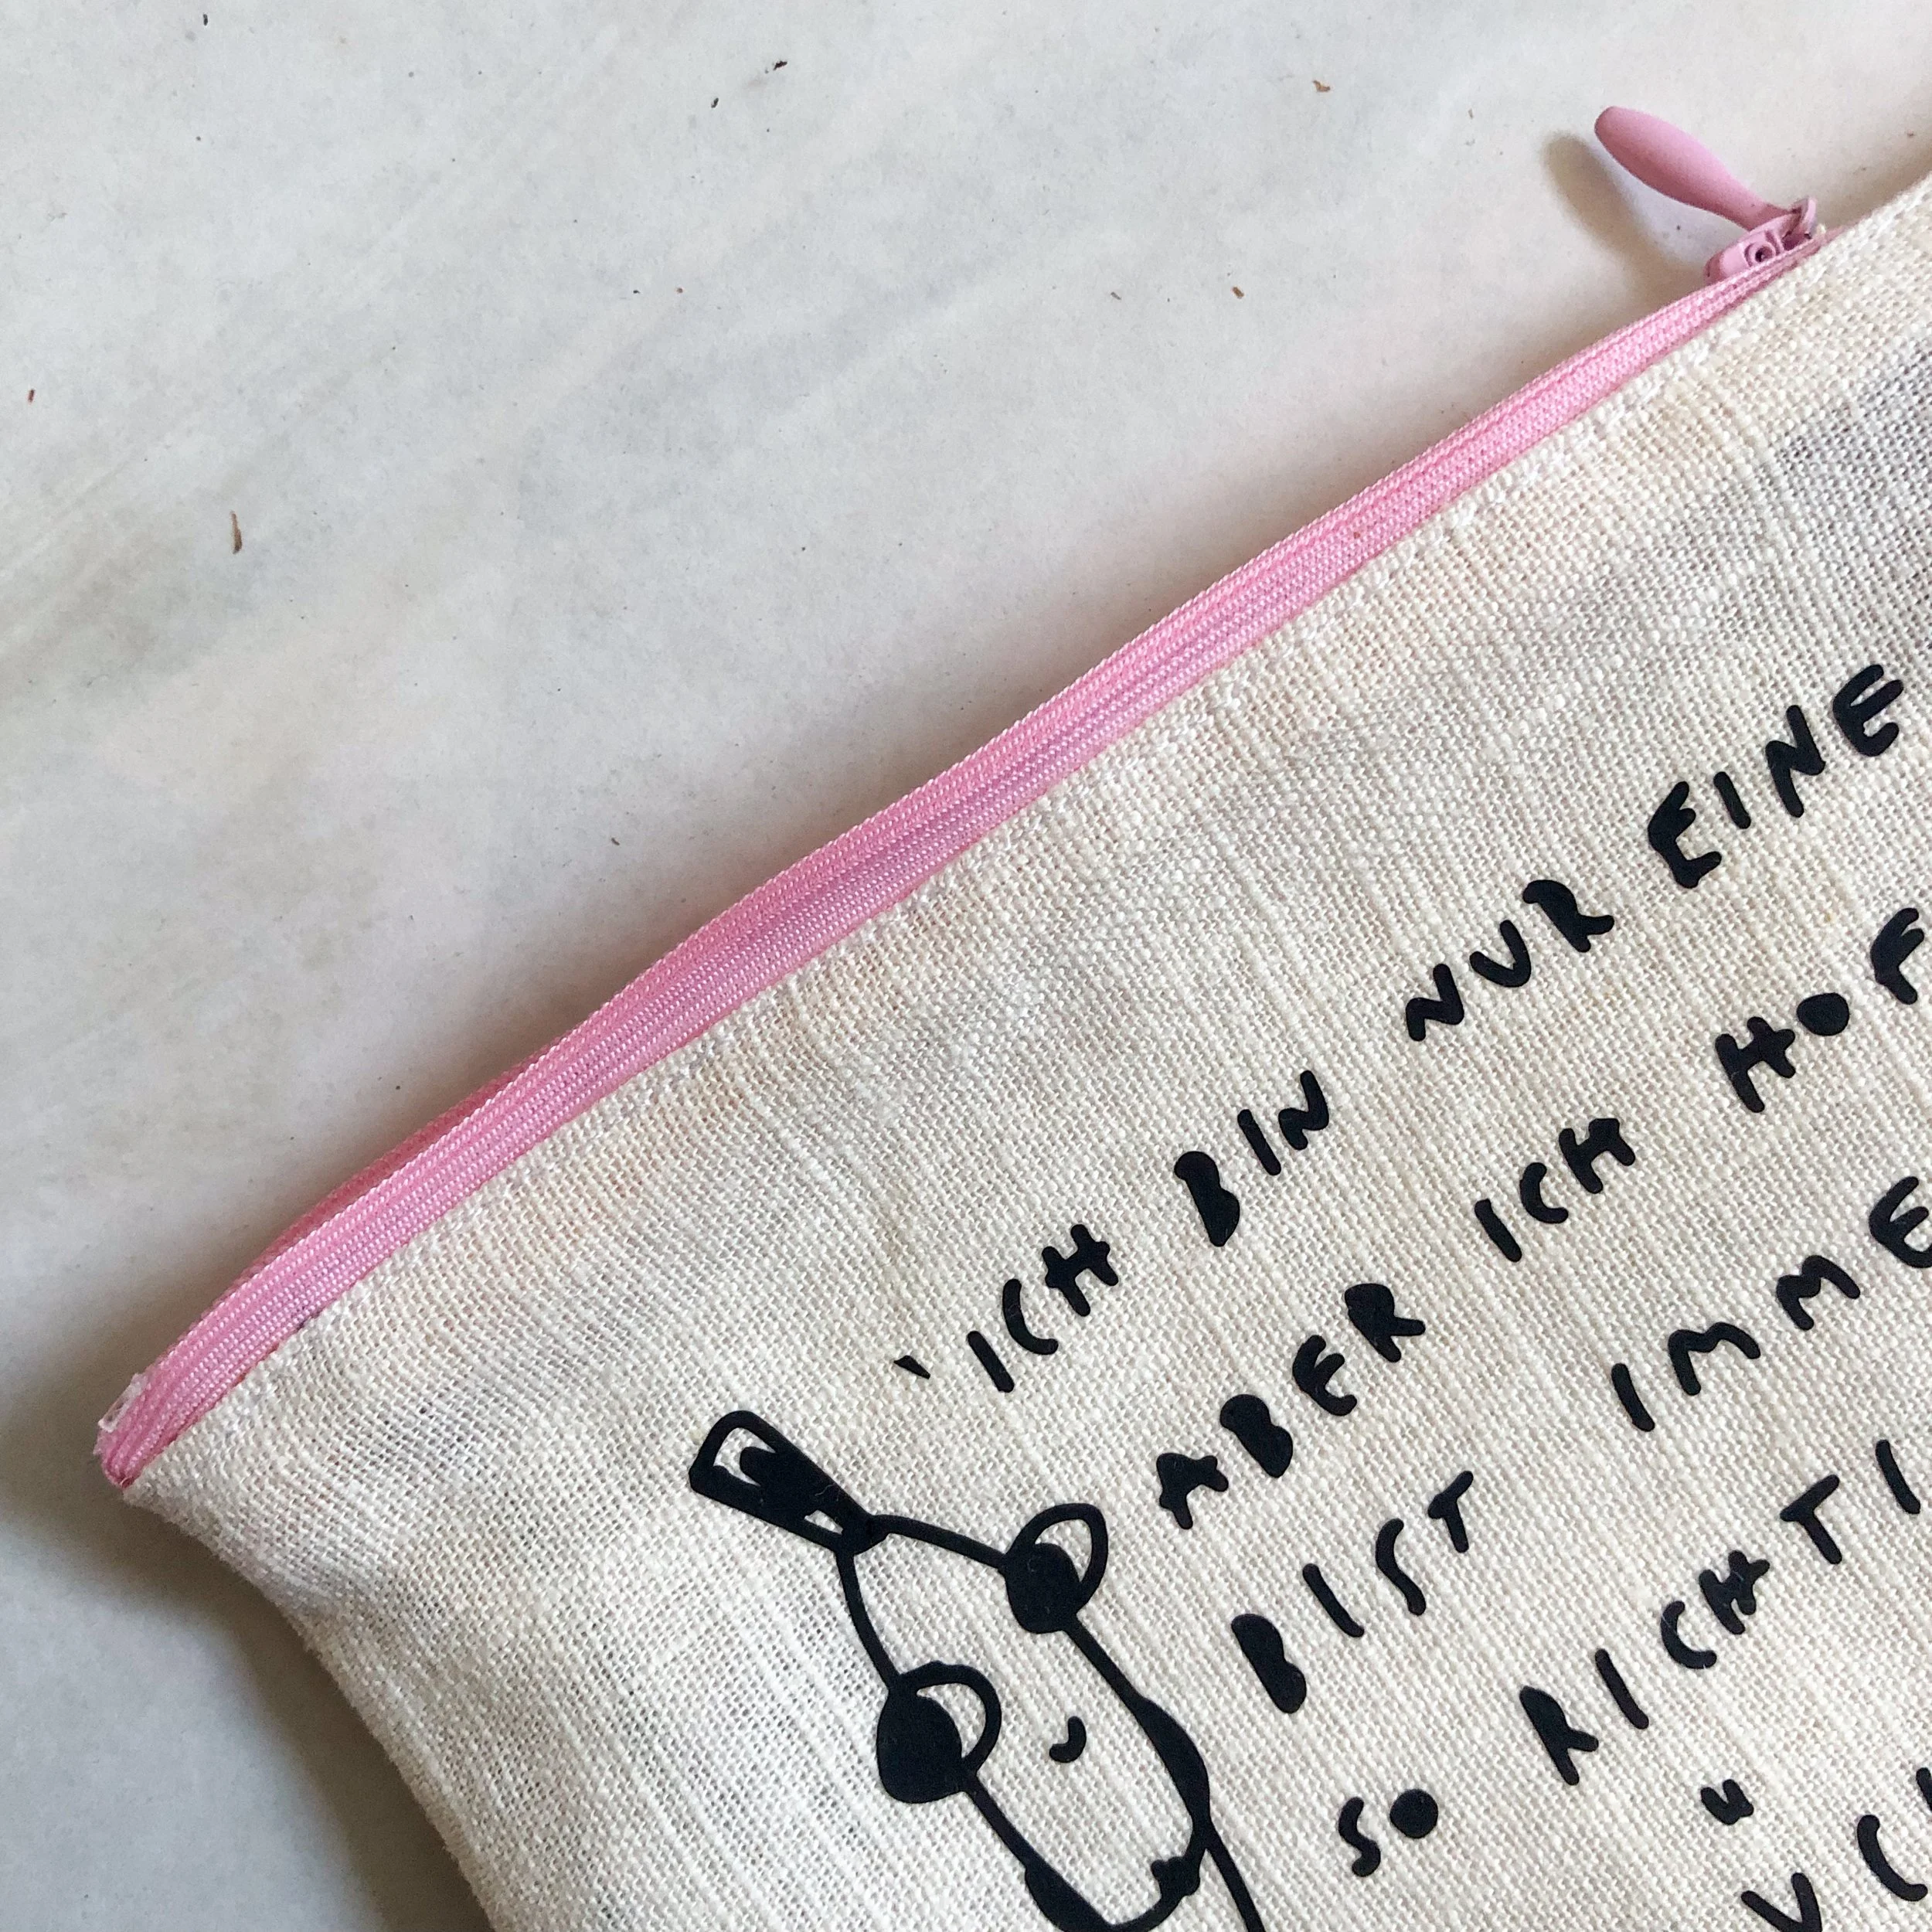 'ICH BIN NUR EINE
ABER ICH HOF
BIST IMME
SO RICHTI